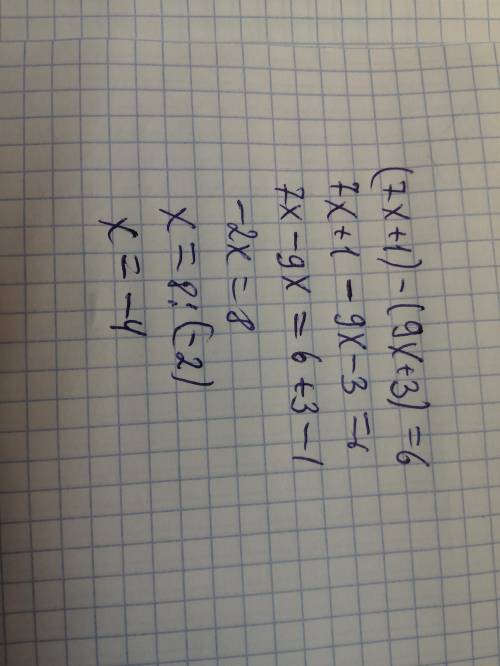 (7x+1)-(9x+3)=6
7x+1-9x-3=6
7x-9x=6+3-1
-2x=8
x=8:(-2)
x=-4